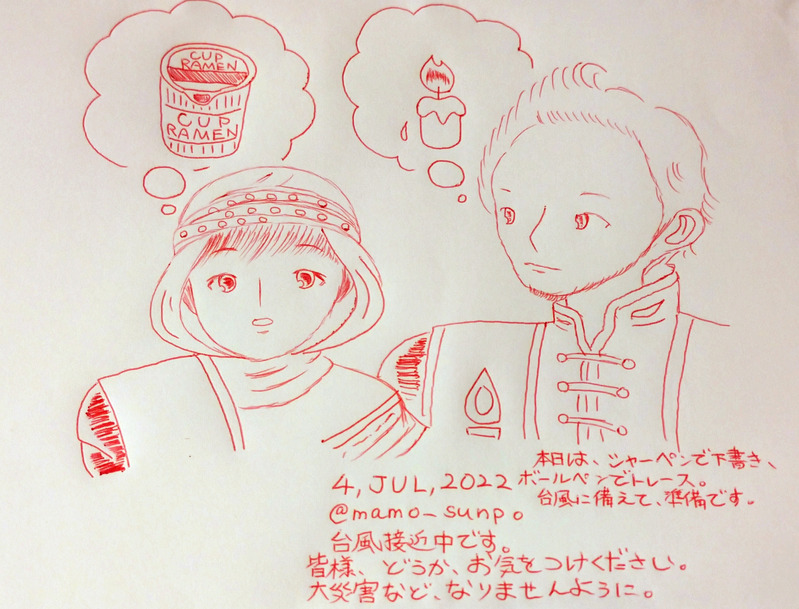 CUP
RAMEN
CUP
RAMEN
本日は、シャーペンで下書き、
ボールペンでトレース。
台風に備えて、準備です。
4, JUL, 2022
@mamo_sunp。
台風接近中です。
皆様、どうか、お気をつけください。
大災害など、なりませんように。